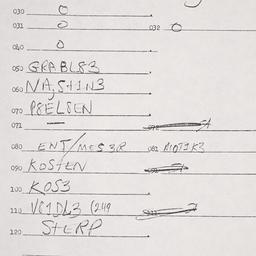 030 0
031 0 032 0
040 0
050 GRABLS3
060 NA,S+1N3
070 P8ELSEN
071 —
080 ENT/MES3R 081 RIOTIK3
090 KOS+EN
100 KOS3
110 (249
120 S+ERP